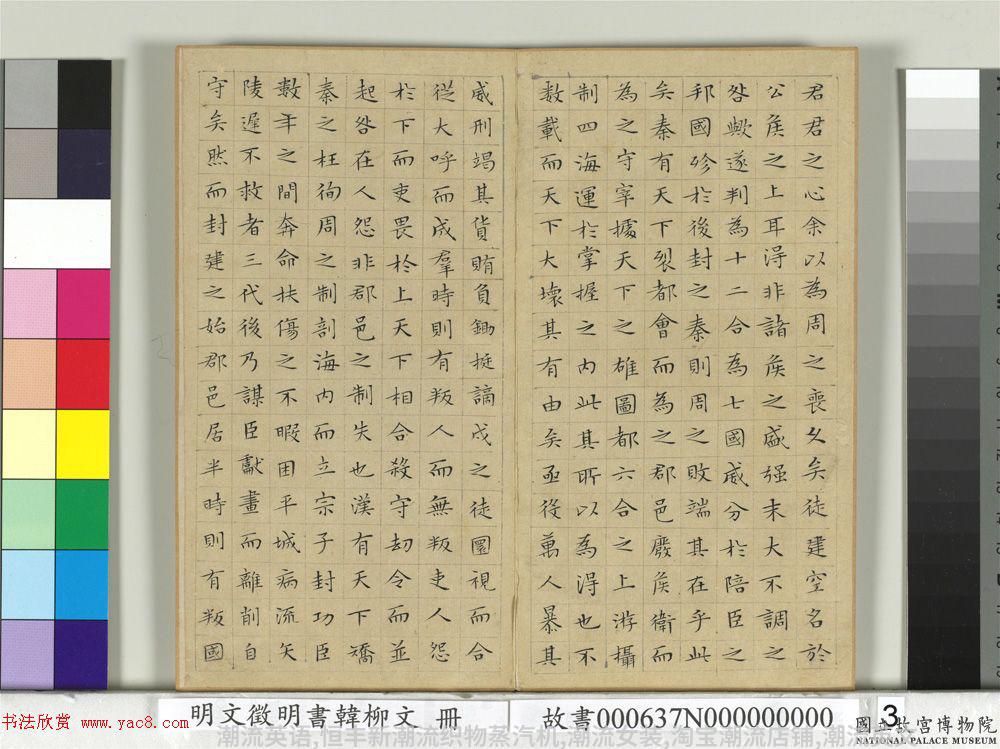 君君之心余以為周之喪久矣徒建空名於
公侯之上耳得非諸侯之盛强末大不掉之
咎歟遂判為十二合為七國威分於陪臣之
邦國殄於後封之秦則周之敗端其在乎此
矣秦有天下裂都會而為之郡邑廢侯衛而
為之守宰據天下之雄圖都六合之上游攝
制四海運於掌握之內此其所以為得也不
數載而天下大壞其有由矣亟役萬人暴其
威刑竭其貨賄負鋤梃謫戍之徒圜視而合
從大呼而成羣時則有叛人而無叛吏人怨
於下而吏畏於上天下相合殺守劫令而並
起咎在人怨非郡邑之制失也漢有天下矯
秦之枉徇周之制剖海內而立宗子封功臣
數年之間奔命扶傷之不暇困平城病流矢
陵遲不救者三代後乃謀臣獻畫而離削自
守矣然而封建之始郡邑居半時則有叛國
书法欣赏 www.yac8.com
明文徵明書韓柳文 冊
故書000637N000000000
3
國立故宮博物院
NATIONAL PALACE MUSEUM
潮流英语,恒丰新潮流织物蒸汽机,潮流女装,淘宝潮流店铺,潮流